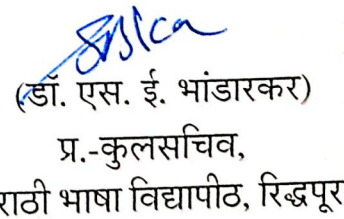 (डॉ. एस. ई. भांडारकर)
प्र.-कुलसचिव,
राठी भाषा विद्यापीठ, रिद्धपूर